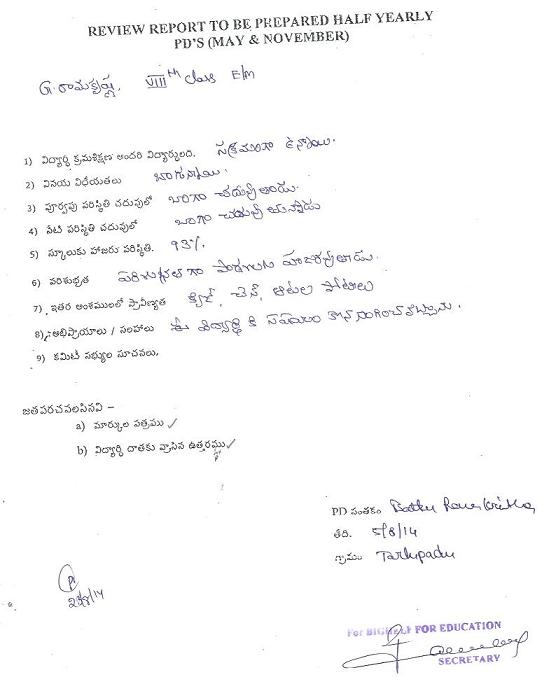 REVIEW REPORT TO BE PREPARED HALF YEARLY
PD'S (MAY & NOVEMBER)
G. రామకృష్ణ. VIIIth class E/M
1) విద్యార్థి క్రమశిక్షణ అందరి విద్యార్థులది. సక్రమంగా ఉన్నాయి.
2) వినయ విధేయతలు బాగున్నాయి.
3) పూర్వపు పరిస్థితి చదువులో బాగా చదువుతాడు.
4) నేటి పరిస్థితి చదువులో బాగా చదువుతున్నాడు
5) స్కూలుకు హాజరు పరిస్థితి. 93%.
6) పరిశుభ్రత పరిశుభ్రంగా
7) ఇతర అంశములలో ప్రావీణ్యత క్విజ్, చెస్, ఆటల పోటీలు
8) అభిప్రాయాలు / సలహాలు ఈ విద్యార్థి కి సహాయం కొనసాగించవచ్చును.
9) కమిటీ సభ్యుల సూచనలు.
జతపరచవలసినవి –
a) మార్కుల పత్రము ✓
b) విద్యార్థి దాతకు వ్రాసిన ఉత్తరము ✓
PD సంతకం Battu Rama Krishna
తేది. 5/8/14
గ్రామం Tarlupadu
For BIGHELP FOR EDUCATION
SECRETARY